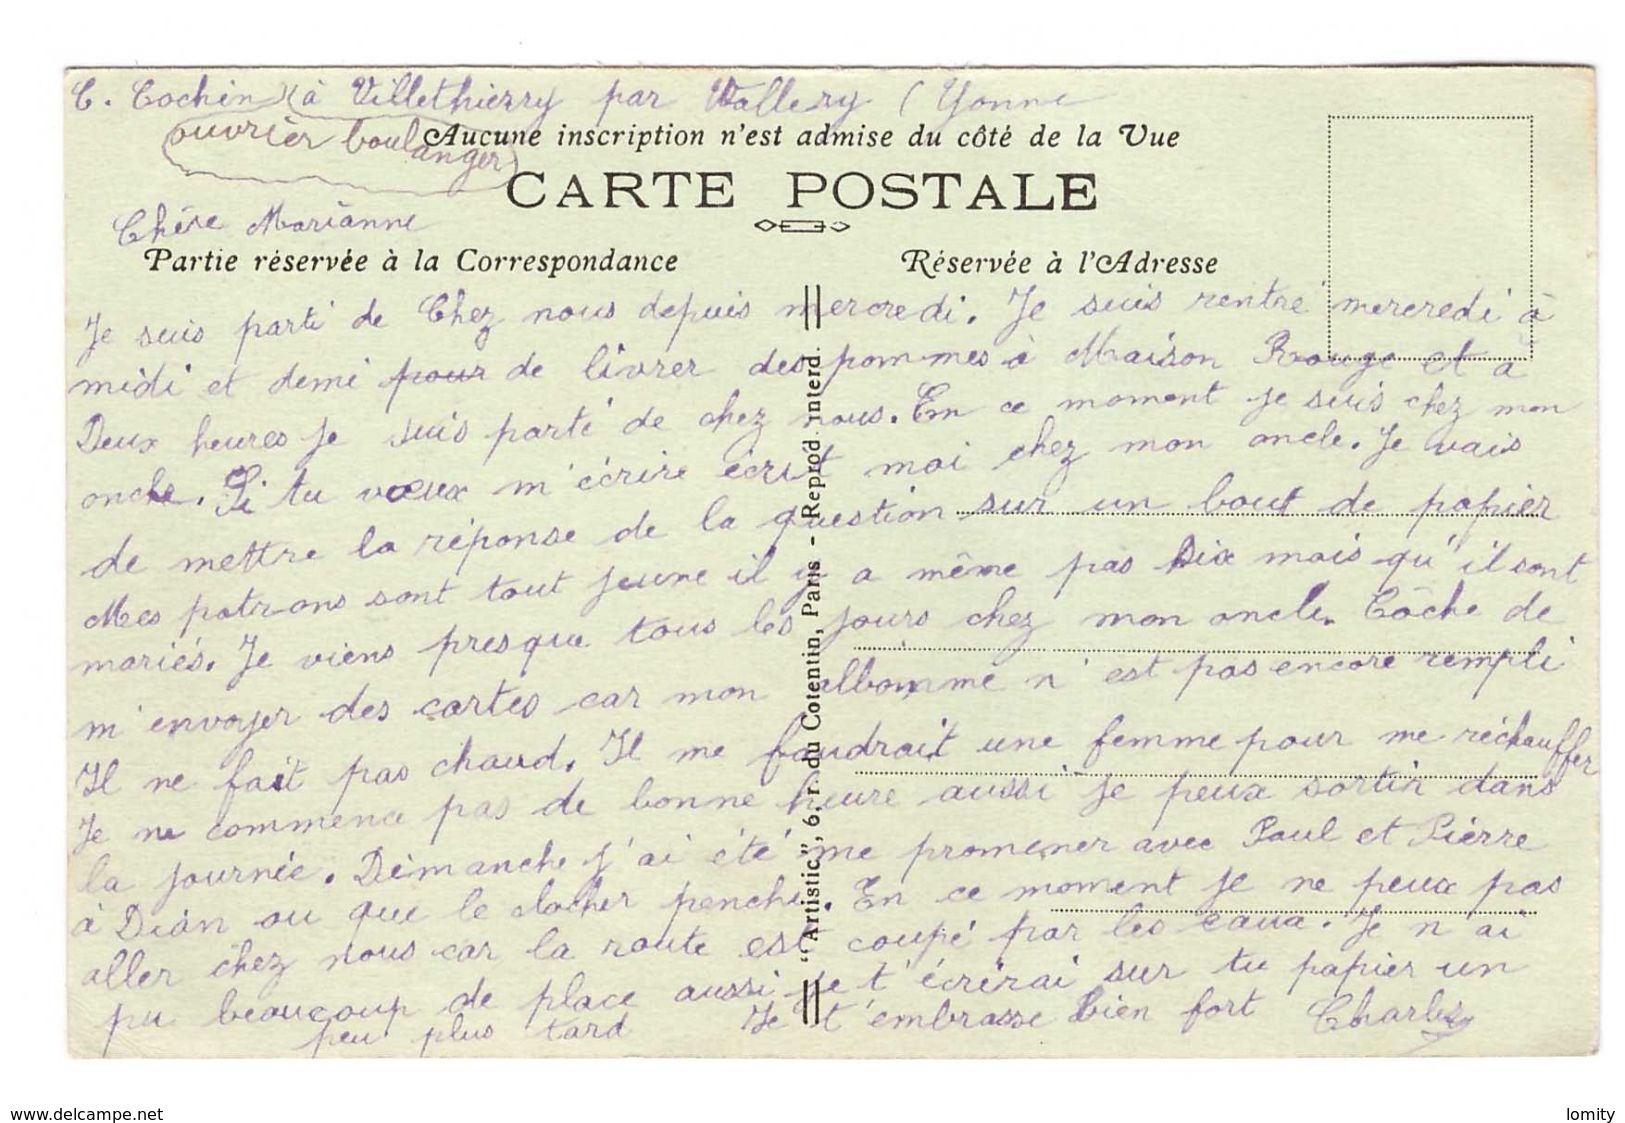 C. Cochin à Villethierry par Vallery (Yonne
ouvrier boulanger
Aucune inscription n'est admise du côté de la Vue
CARTE POSTALE
Chère Marianne
Partie réservée à la Correspondance
Réservée à l'Adresse
Je suis parti de Chez nous depuis mercredi. Je suis rentré mercredi à
midi et demi pour de livrer des pommes à Maison Rouge et à
Deux heures je suis parti de chez nous. En ce moment je suis chez mon
oncle. Si tu vœux m'écrire écrit moi chez mon oncle. Je vais
de mettre la réponse de la question sur un bout de papier
Mes patrons sont tout jeune il y a même pas Dix mois qu'il sont
mariés. Je viens presque tous les jours chez mon oncle. Câche de
m'envoyer des cartes car mon albomme n'est pas encore rempli
Il ne fait pas chaud. Il me faudrait une femme pour me réchauffer
Je ne commence pas de bonne heure aussi je peux sortir dans
la journée. Dimanche j'ai été me promener avec Paul et Pierre
à Dian ou que le clocher penche. En ce moment je ne peux pas
aller chez nous car la route est coupé par les eaux. Je n'ai
pu beaucoup de place aussi je t'écrirai sur tu papier un
peu plus tard Je t'embrasse bien fort Charles
"Artistic", 6, r. du Cotentin, Paris - Reprod. interd.
www.delcampe.net
lomity